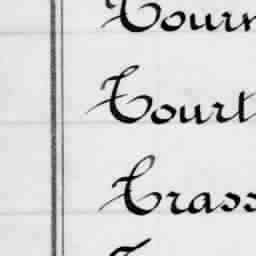 Tourn
Tourt
Trass